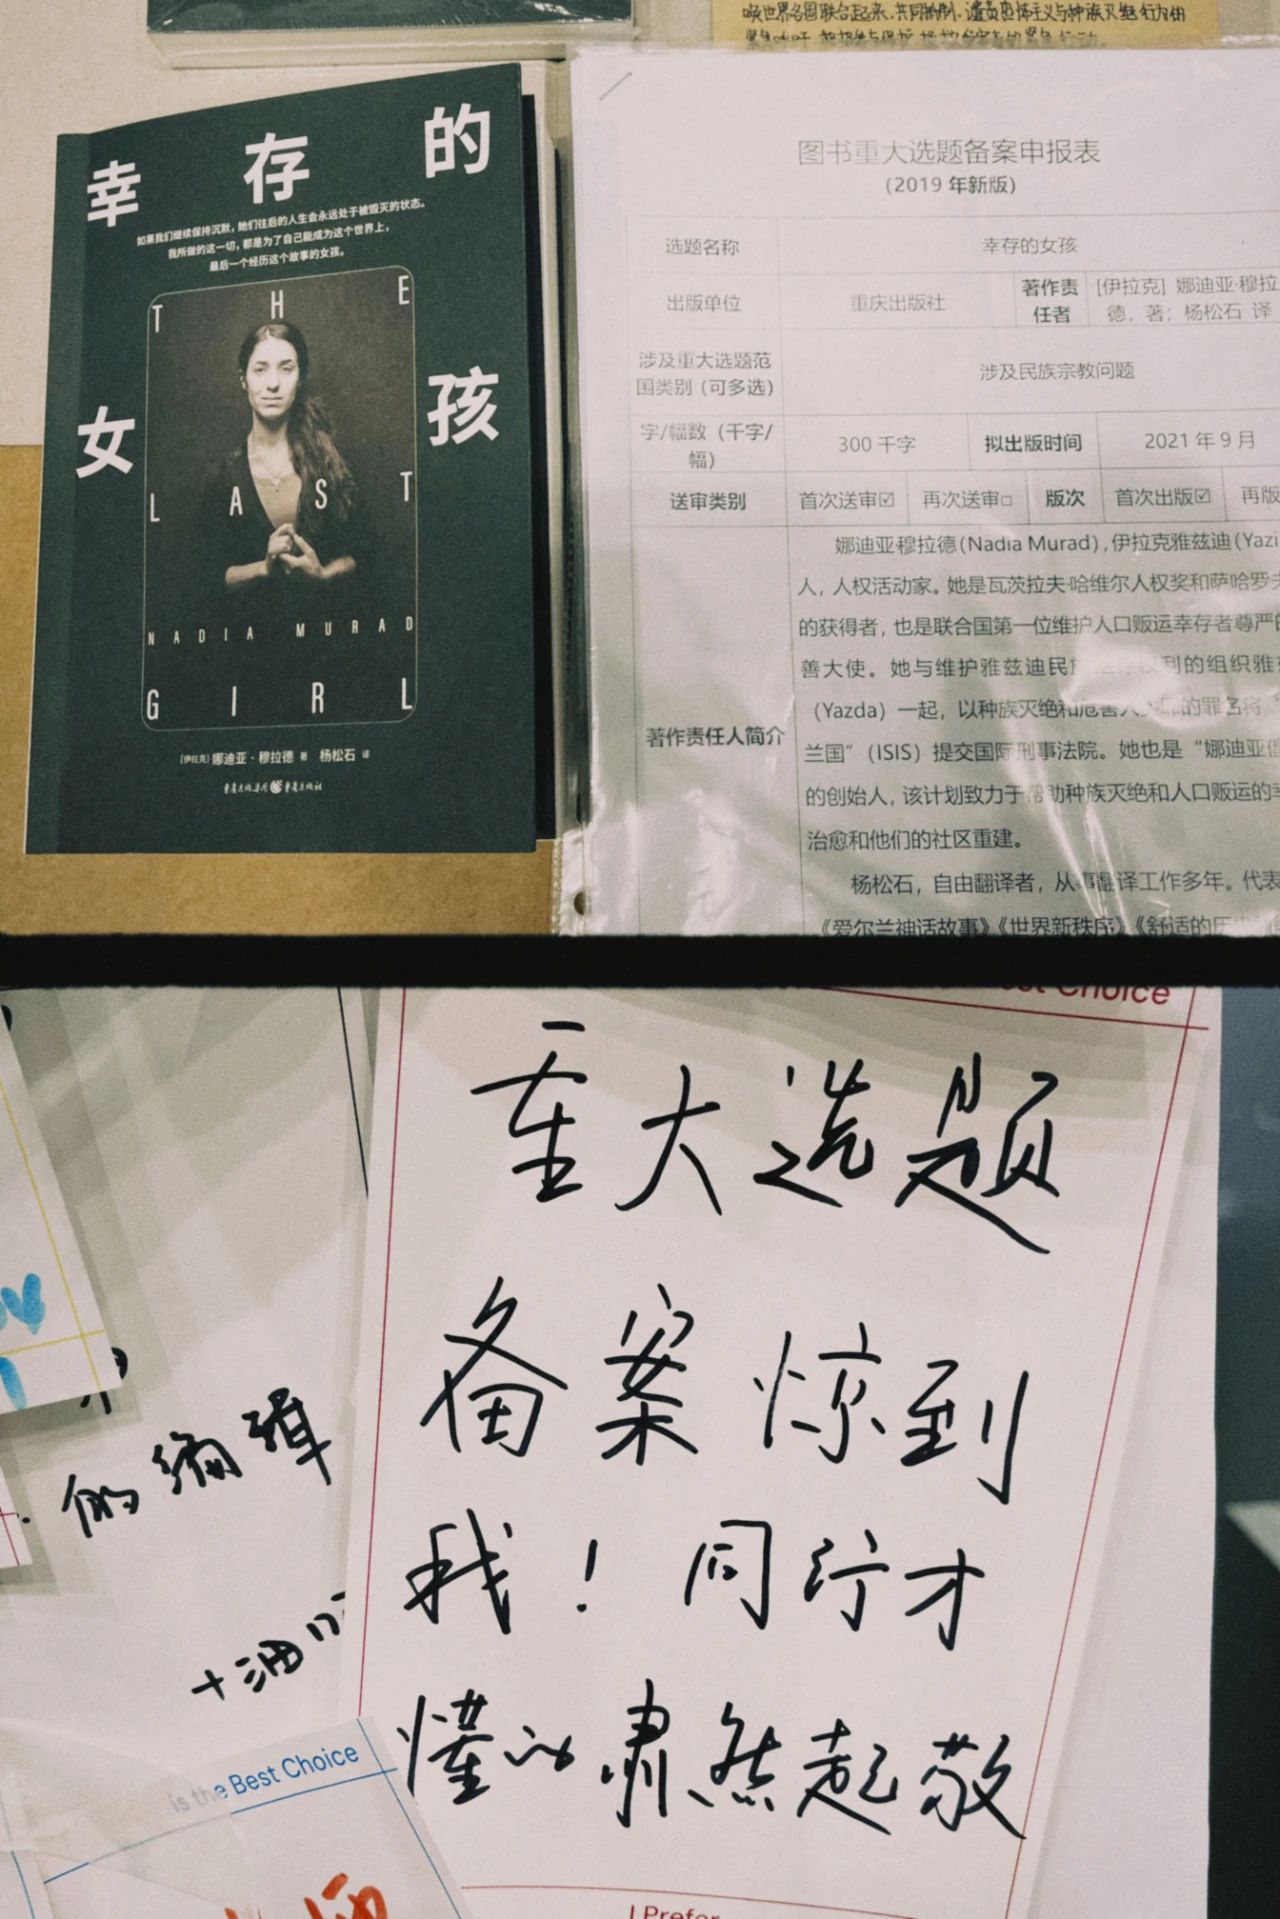 唤世界各国联合起来,共同抵制、谴责恐怖主义与种族灭绝行为的
幸存的
女孩
如果我们继续保持沉默，她们往后的人生会永远处于被毁灭的状态。
我所做的这一切，都是为了自己能成为这个世界上，
最后一个经历这个故事的女孩。
THE
LAST
NADIA MURAD
GIRL
[伊拉克]娜迪亚·穆拉德 著 杨松石 译
重庆出版集团 重庆出版社
图书重大选题备案申报表
(2019年新版)
选题名称 幸存的女孩
出版单位 重庆出版社 著作责任者 [伊拉克] 娜迪亚·穆拉
德，著；杨松石 译
涉及重大选题范
围类别（可多选） 涉及民族宗教问题
字/幅数（千字/
幅） 300 千字 拟出版时间 2021 年 9 月
送审类别 首次送审☑ 再次送审□ 版次 首次出版☑ 再版
著作责任人简介
娜迪亚穆拉德(Nadia Murad),伊拉克雅兹迪(Yazi
人，人权活动家。她是瓦茨拉夫·哈维尔人权奖和萨哈罗夫
的获得者，也是联合国第一位维护人口贩运幸存者尊严的
善大使。她与维护雅兹迪民族 权利的组织雅兹
（Yazda）一起，以种族灭绝和危害人 的罪名将“
兰国”（ISIS）提交国际刑事法院。她也是“娜迪亚倡
的创始人，该计划致力于帮助种族灭绝和人口贩运的幸
治愈和他们的社区重建。
杨松石，自由翻译者，从事翻译工作多年。代表
《爱尔兰神话故事》《世界新秩序》《舒适的历
est Choice
重大选题
备案惊到
我！同行才
懂的肃然起敬
I Prefer
的编辑
加油
is the Best Choice